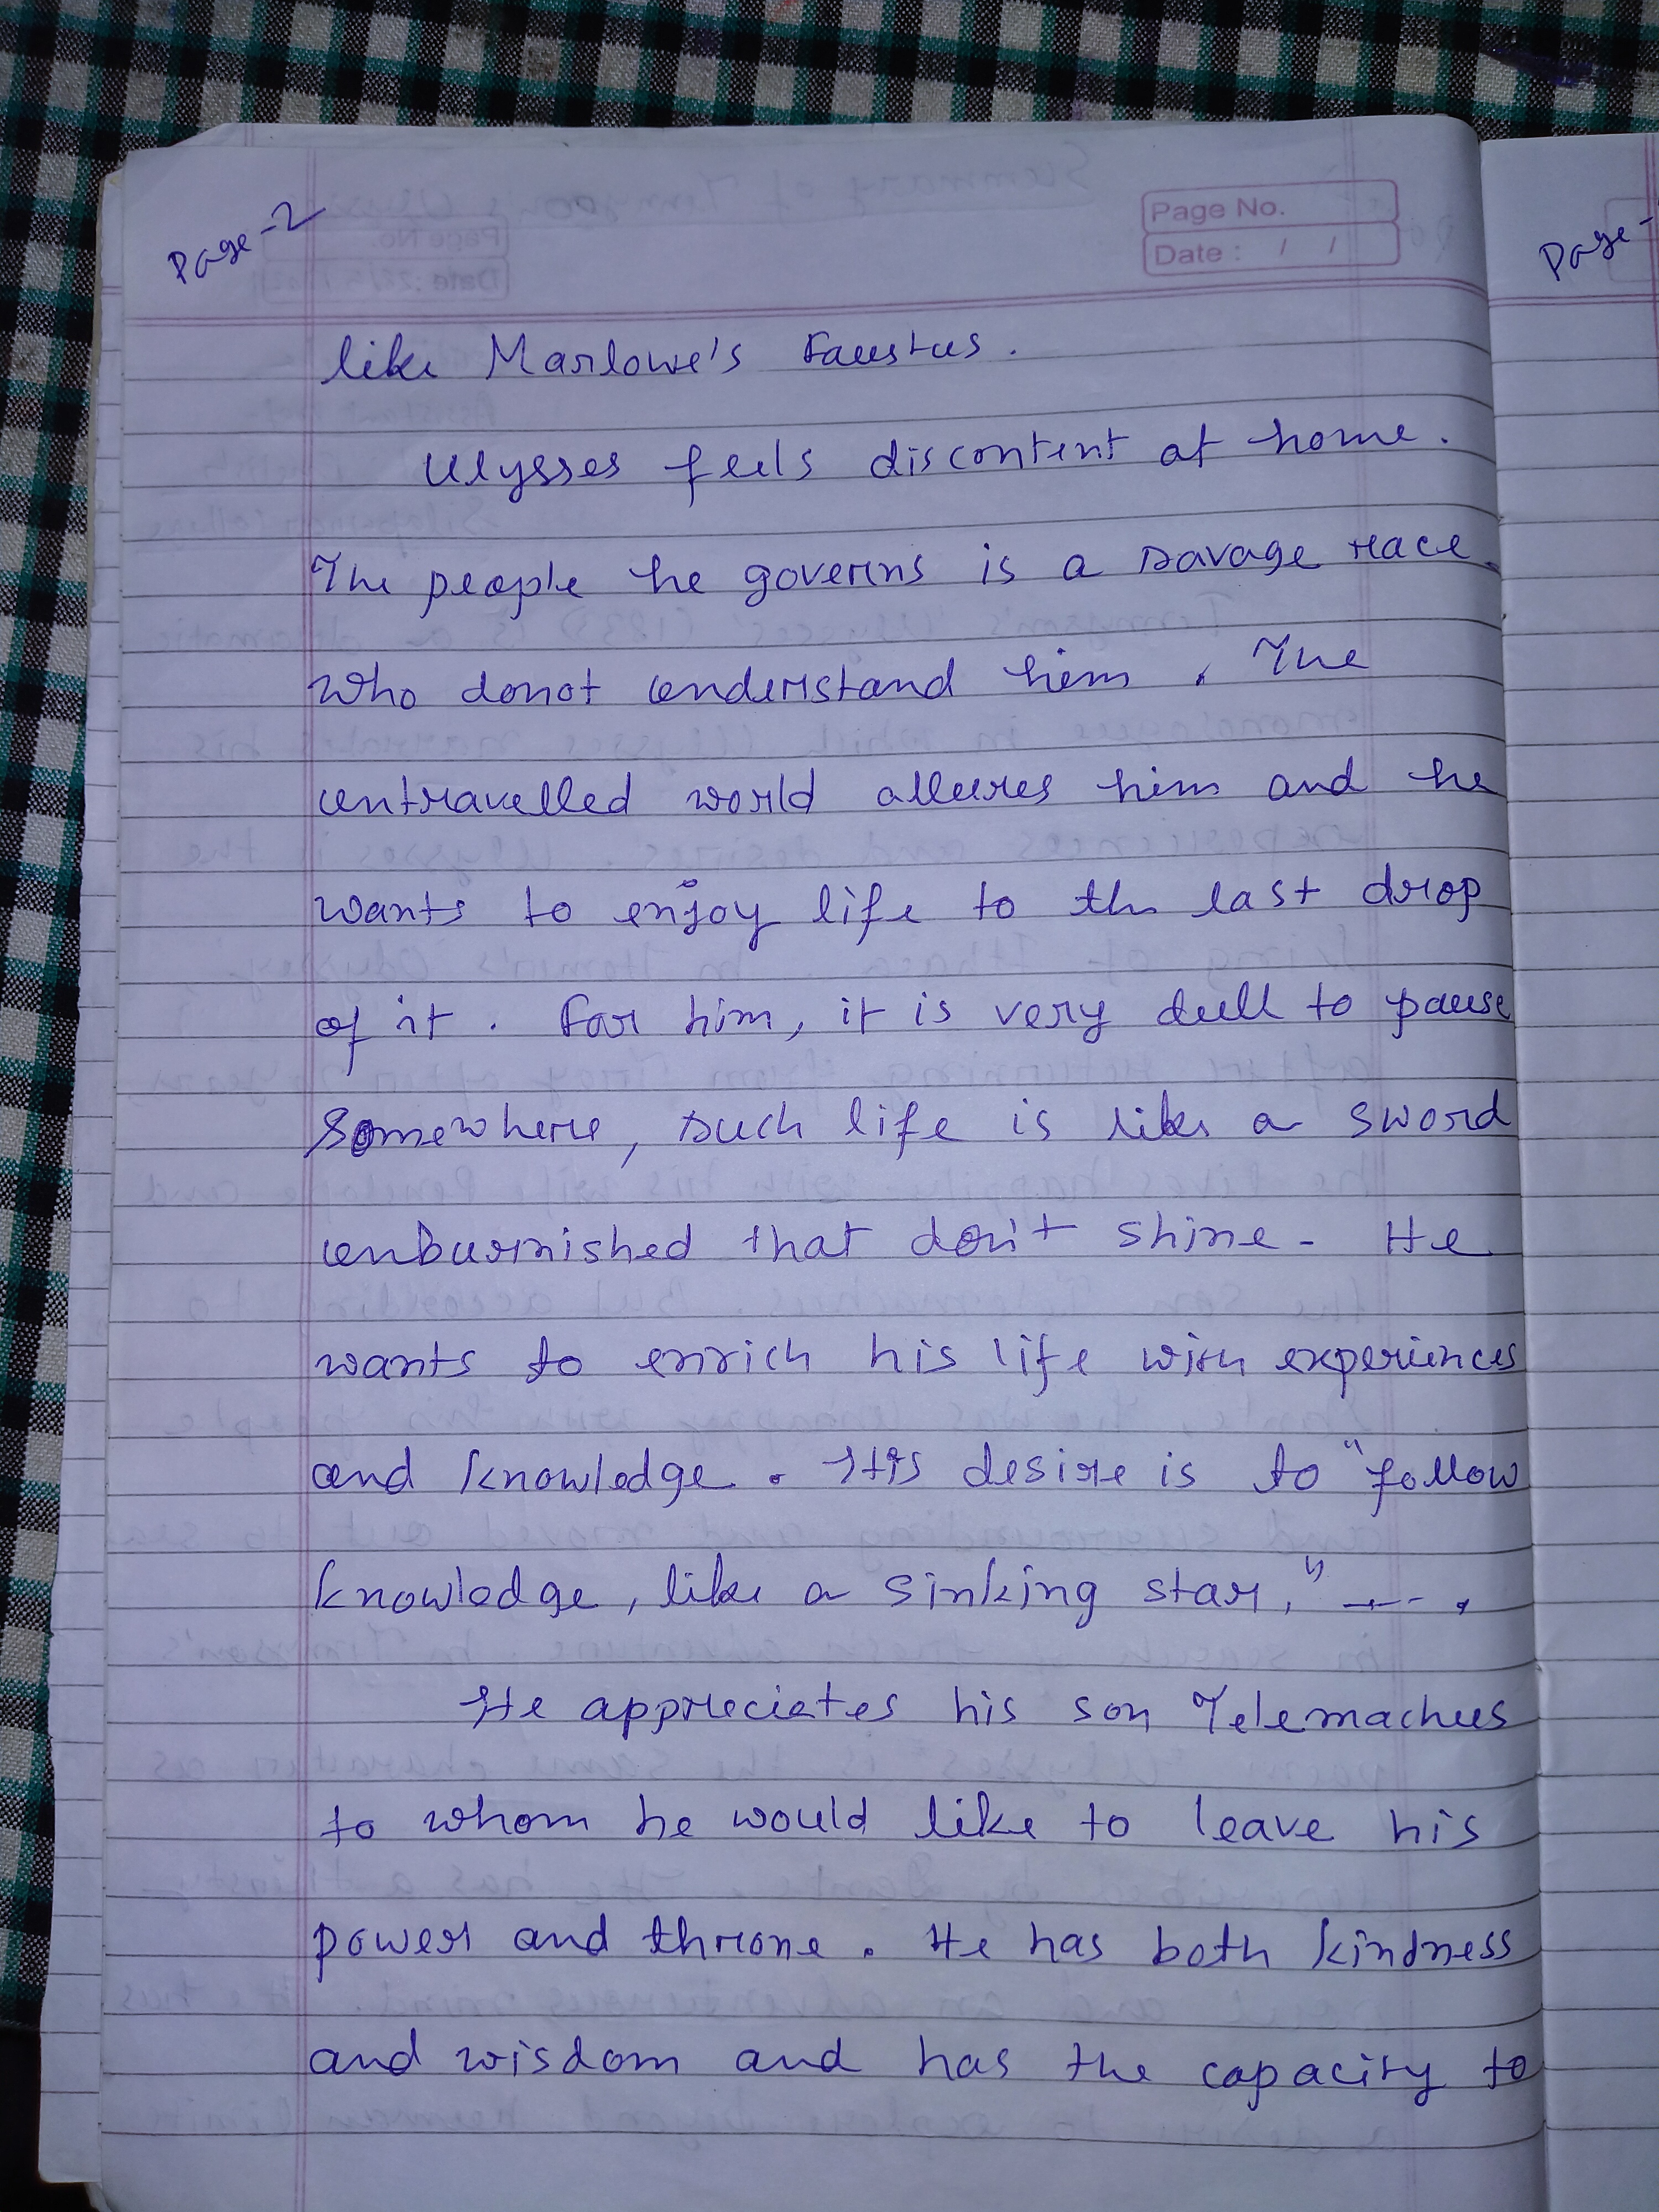 Page-2
Page No.
Date : / /
Page-
like Marlowe's Faustus.
Ulysses feels discontent at home.
The people he governs is a savage race
who donot understand him. The
untravelled world allures him and he
wants to enjoy life to the last drop
of it. For him, it is very dull to pause
somewhere, such life is like a sword
unburnished that don't shine. He
wants to enrich his life with experiences
and knowledge. His desire is to "follow
knowledge, like a sinking star," ---.
He appreciates his son Telemachus
to whom he would like to leave his
power and throne. He has both kindness
and wisdom and has the capacity to